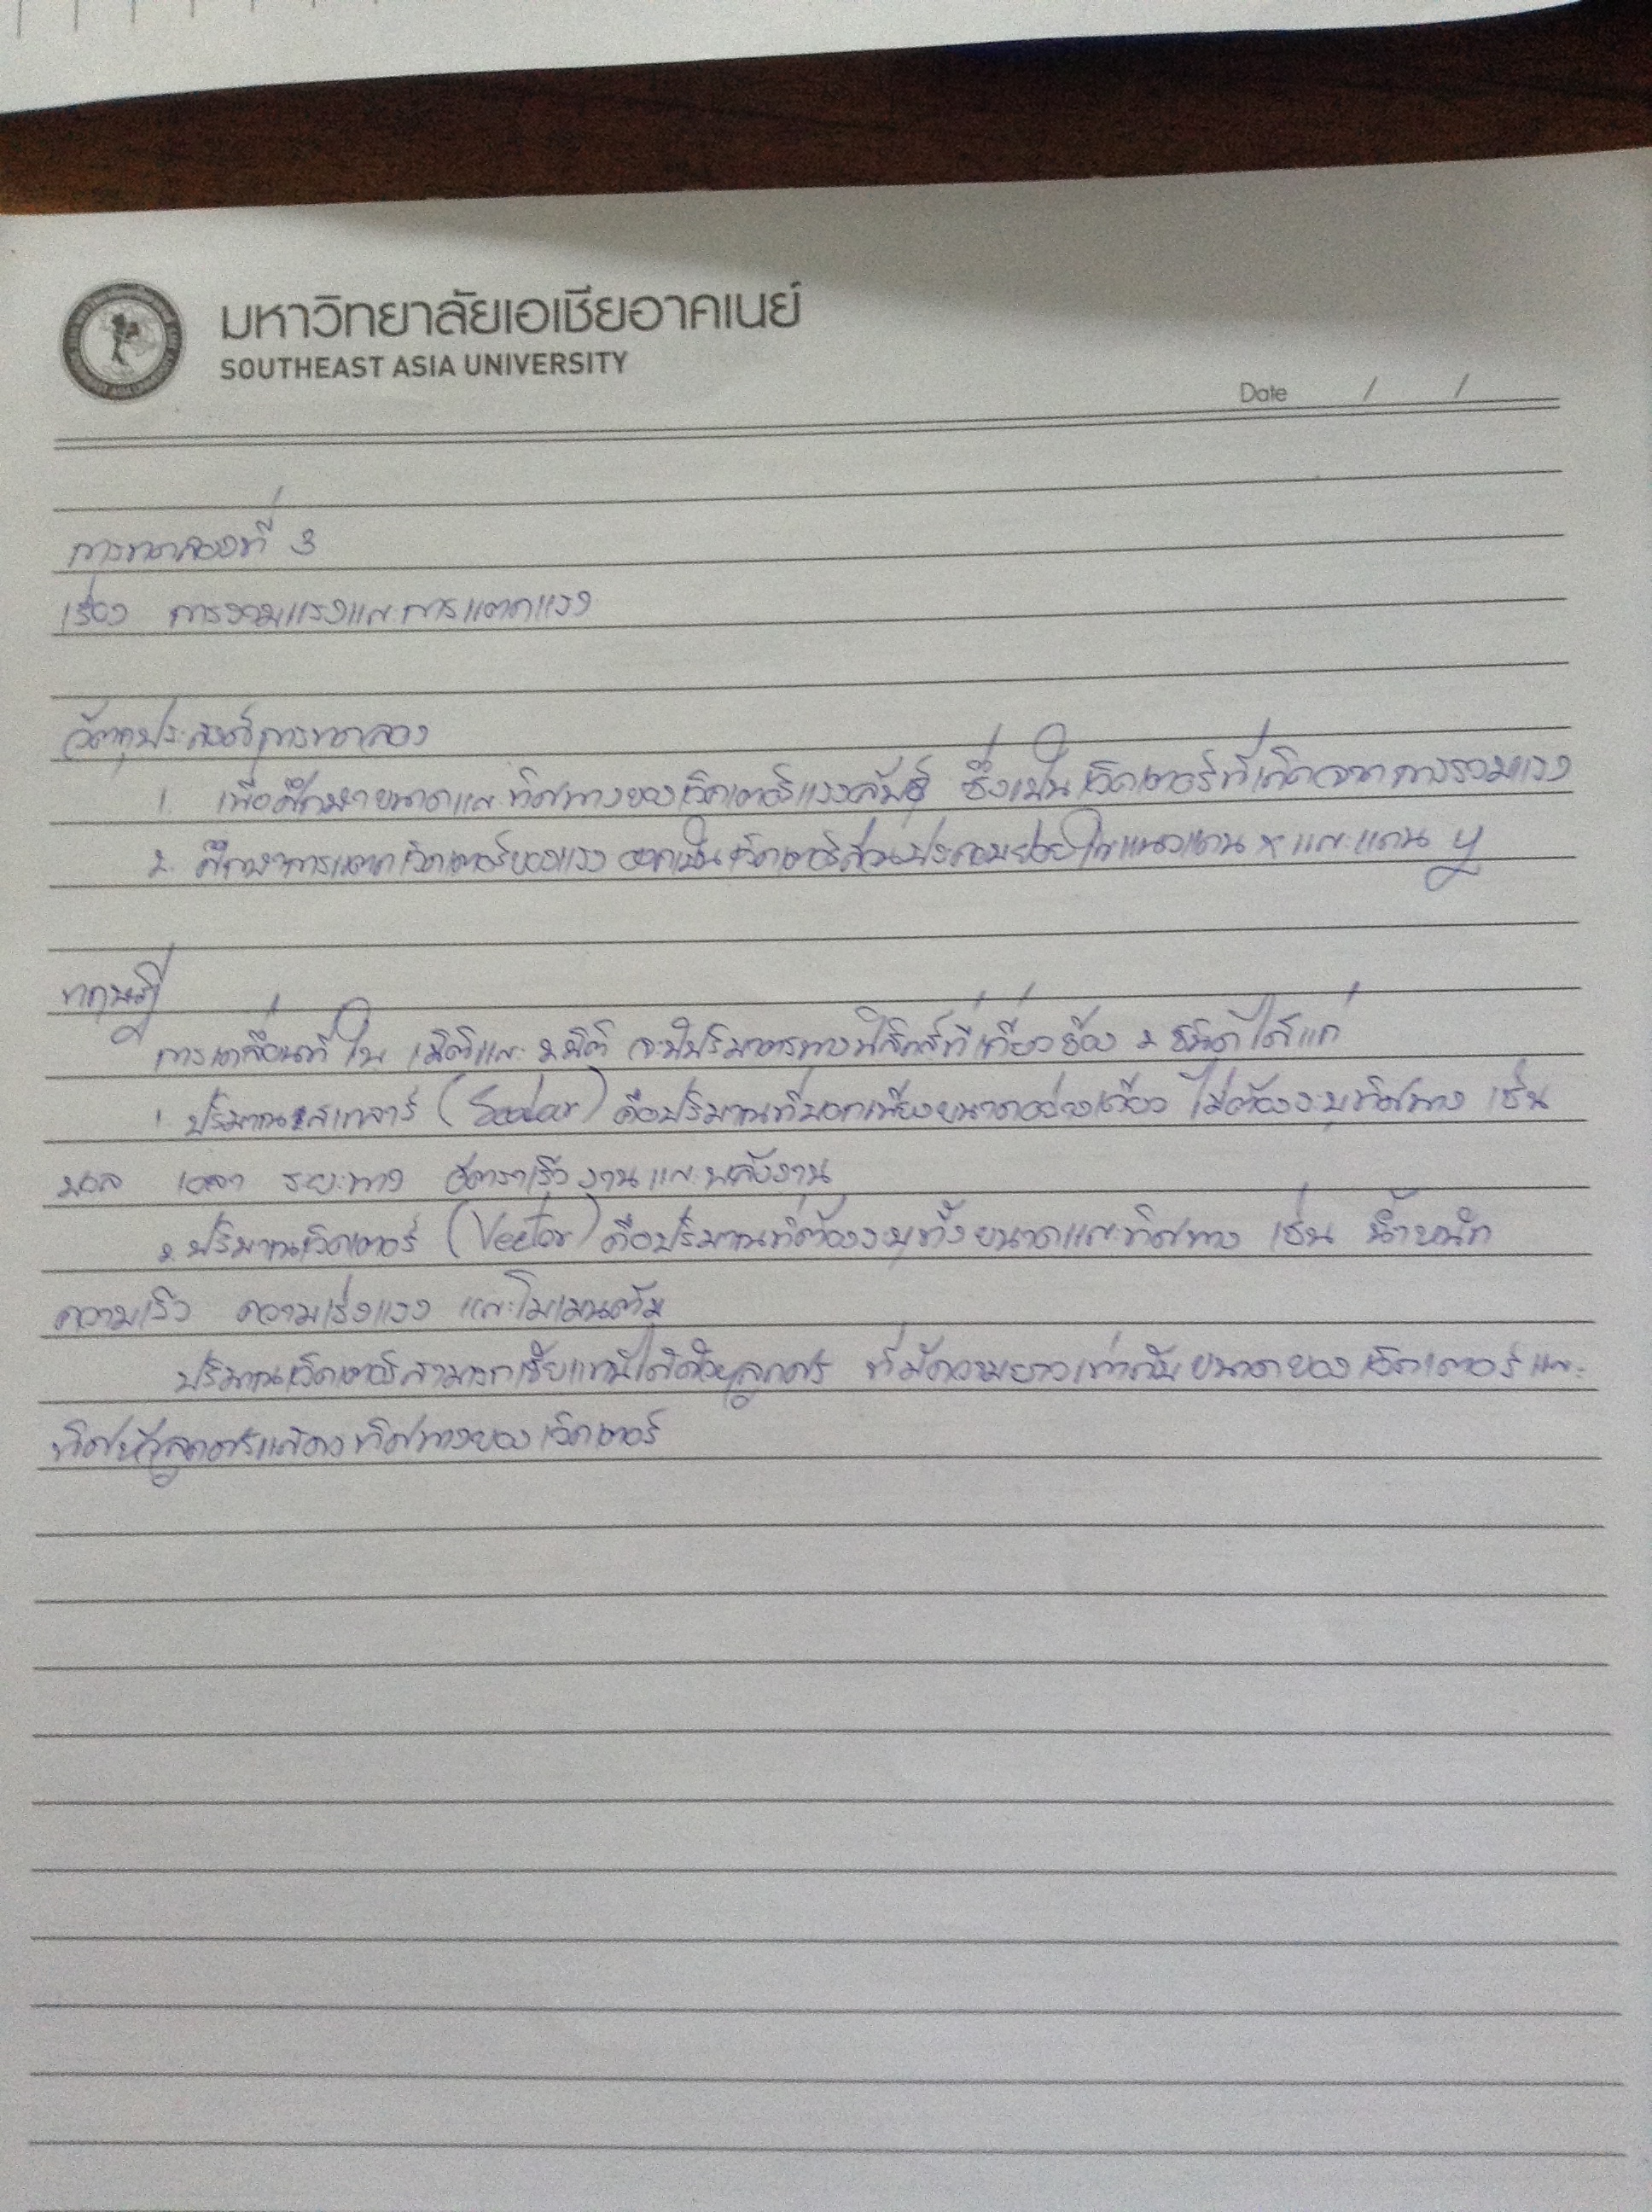 มหาวิทยาลัยเอเชียอาคเนย์
SOUTHEAST ASIA UNIVERSITY
Date / /
การทดลองที่ 3
เรื่อง การรวมแรงและการแตกแรง
วัตถุประสงค์การทดลอง
1. เพื่อศึกษาขนาดและทิศทางของเวกเตอร์แรงลัพธ์ ซึ่งเป็นเวกเตอร์ที่เกิดจากการรวมแรง
2. ศึกษาการแตกเวกเตอร์ของแรง ออกเป็นเวกเตอร์ส่วนประกอบย่อยในแนวแกน x และแกน y
ทฤษฎี
การเคลื่อนที่ใน 1 มิติและ 2 มิติ จะมีปริมาณทางฟิสิกส์ที่เกี่ยวข้อง 2 ชนิด ได้แก่
1. ปริมาณสเกลาร์ (Scalar) คือปริมาณที่บอกเพียงขนาดอย่างเดียว ไม่ต้องระบุทิศทาง เช่น
มวล เวลา ระยะทาง อัตราเร็ว งานและพลังงาน
2. ปริมาณเวกเตอร์ (Vector) คือปริมาณที่ต้องระบุทั้งขนาดและทิศทาง เช่น น้ำหนัก
ความเร็ว ความเร่งแรง และโมเมนตัม
ปริมาณเวกเตอร์สามารถเขียนแทนได้ด้วยลูกศร ที่มีความยาวเท่ากับขนาดของเวกเตอร์และ
ทิศหัวลูกศรแสดงทิศทางของเวกเตอร์